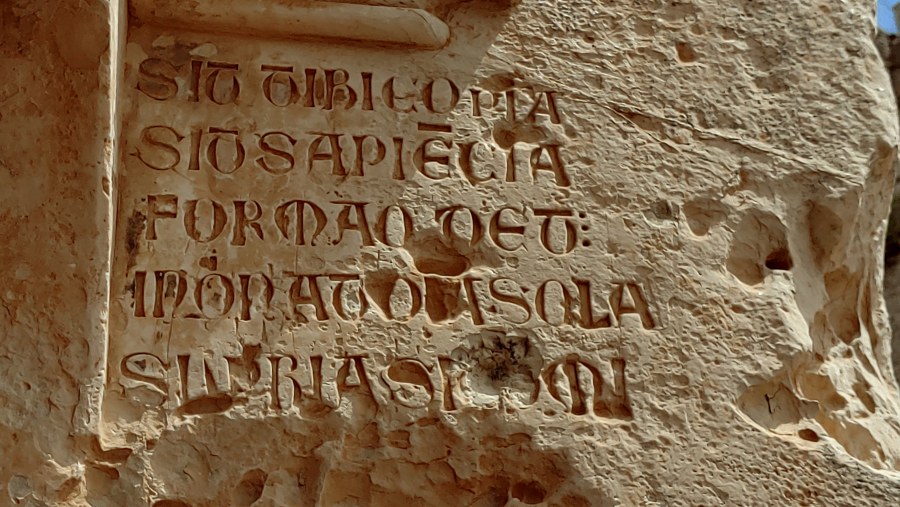 SIT TIBI COPIA
SIT SAPIĒCIA
FORMAQ DET:
INQNAT OIA SOLA